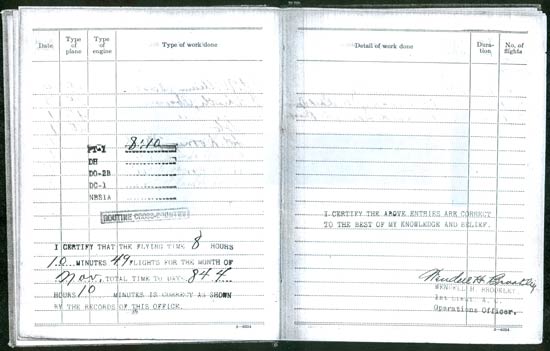 Date
Type of plane
Type of engine
Type of work done
PT-1 8:10
DH
DO-2B
DC-1
NBS1A
ROUTINE CROSS-COUNTRY
I CERTIFY THAT THE FLYING TIME 8 HOURS
10 MINUTES 49 FLIGHTS FOR THE MONTH OF
Nov. TOTAL TIME TO DATE 844
HOURS 10 MINUTES IS CORRECT AS SHOWN
BY THE RECORDS OF THIS OFFICE.
Detail of work done
Dura-tion
No. of flights
I CERTIFY THE ABOVE ENTRIES ARE CORRECT
TO THE BEST OF MY KNOWLEDGE AND BELIEF.
Wendell H. Brookley
WENDELL H. BROOKLEY
1st Lieut. A. C.
Operations Officer.